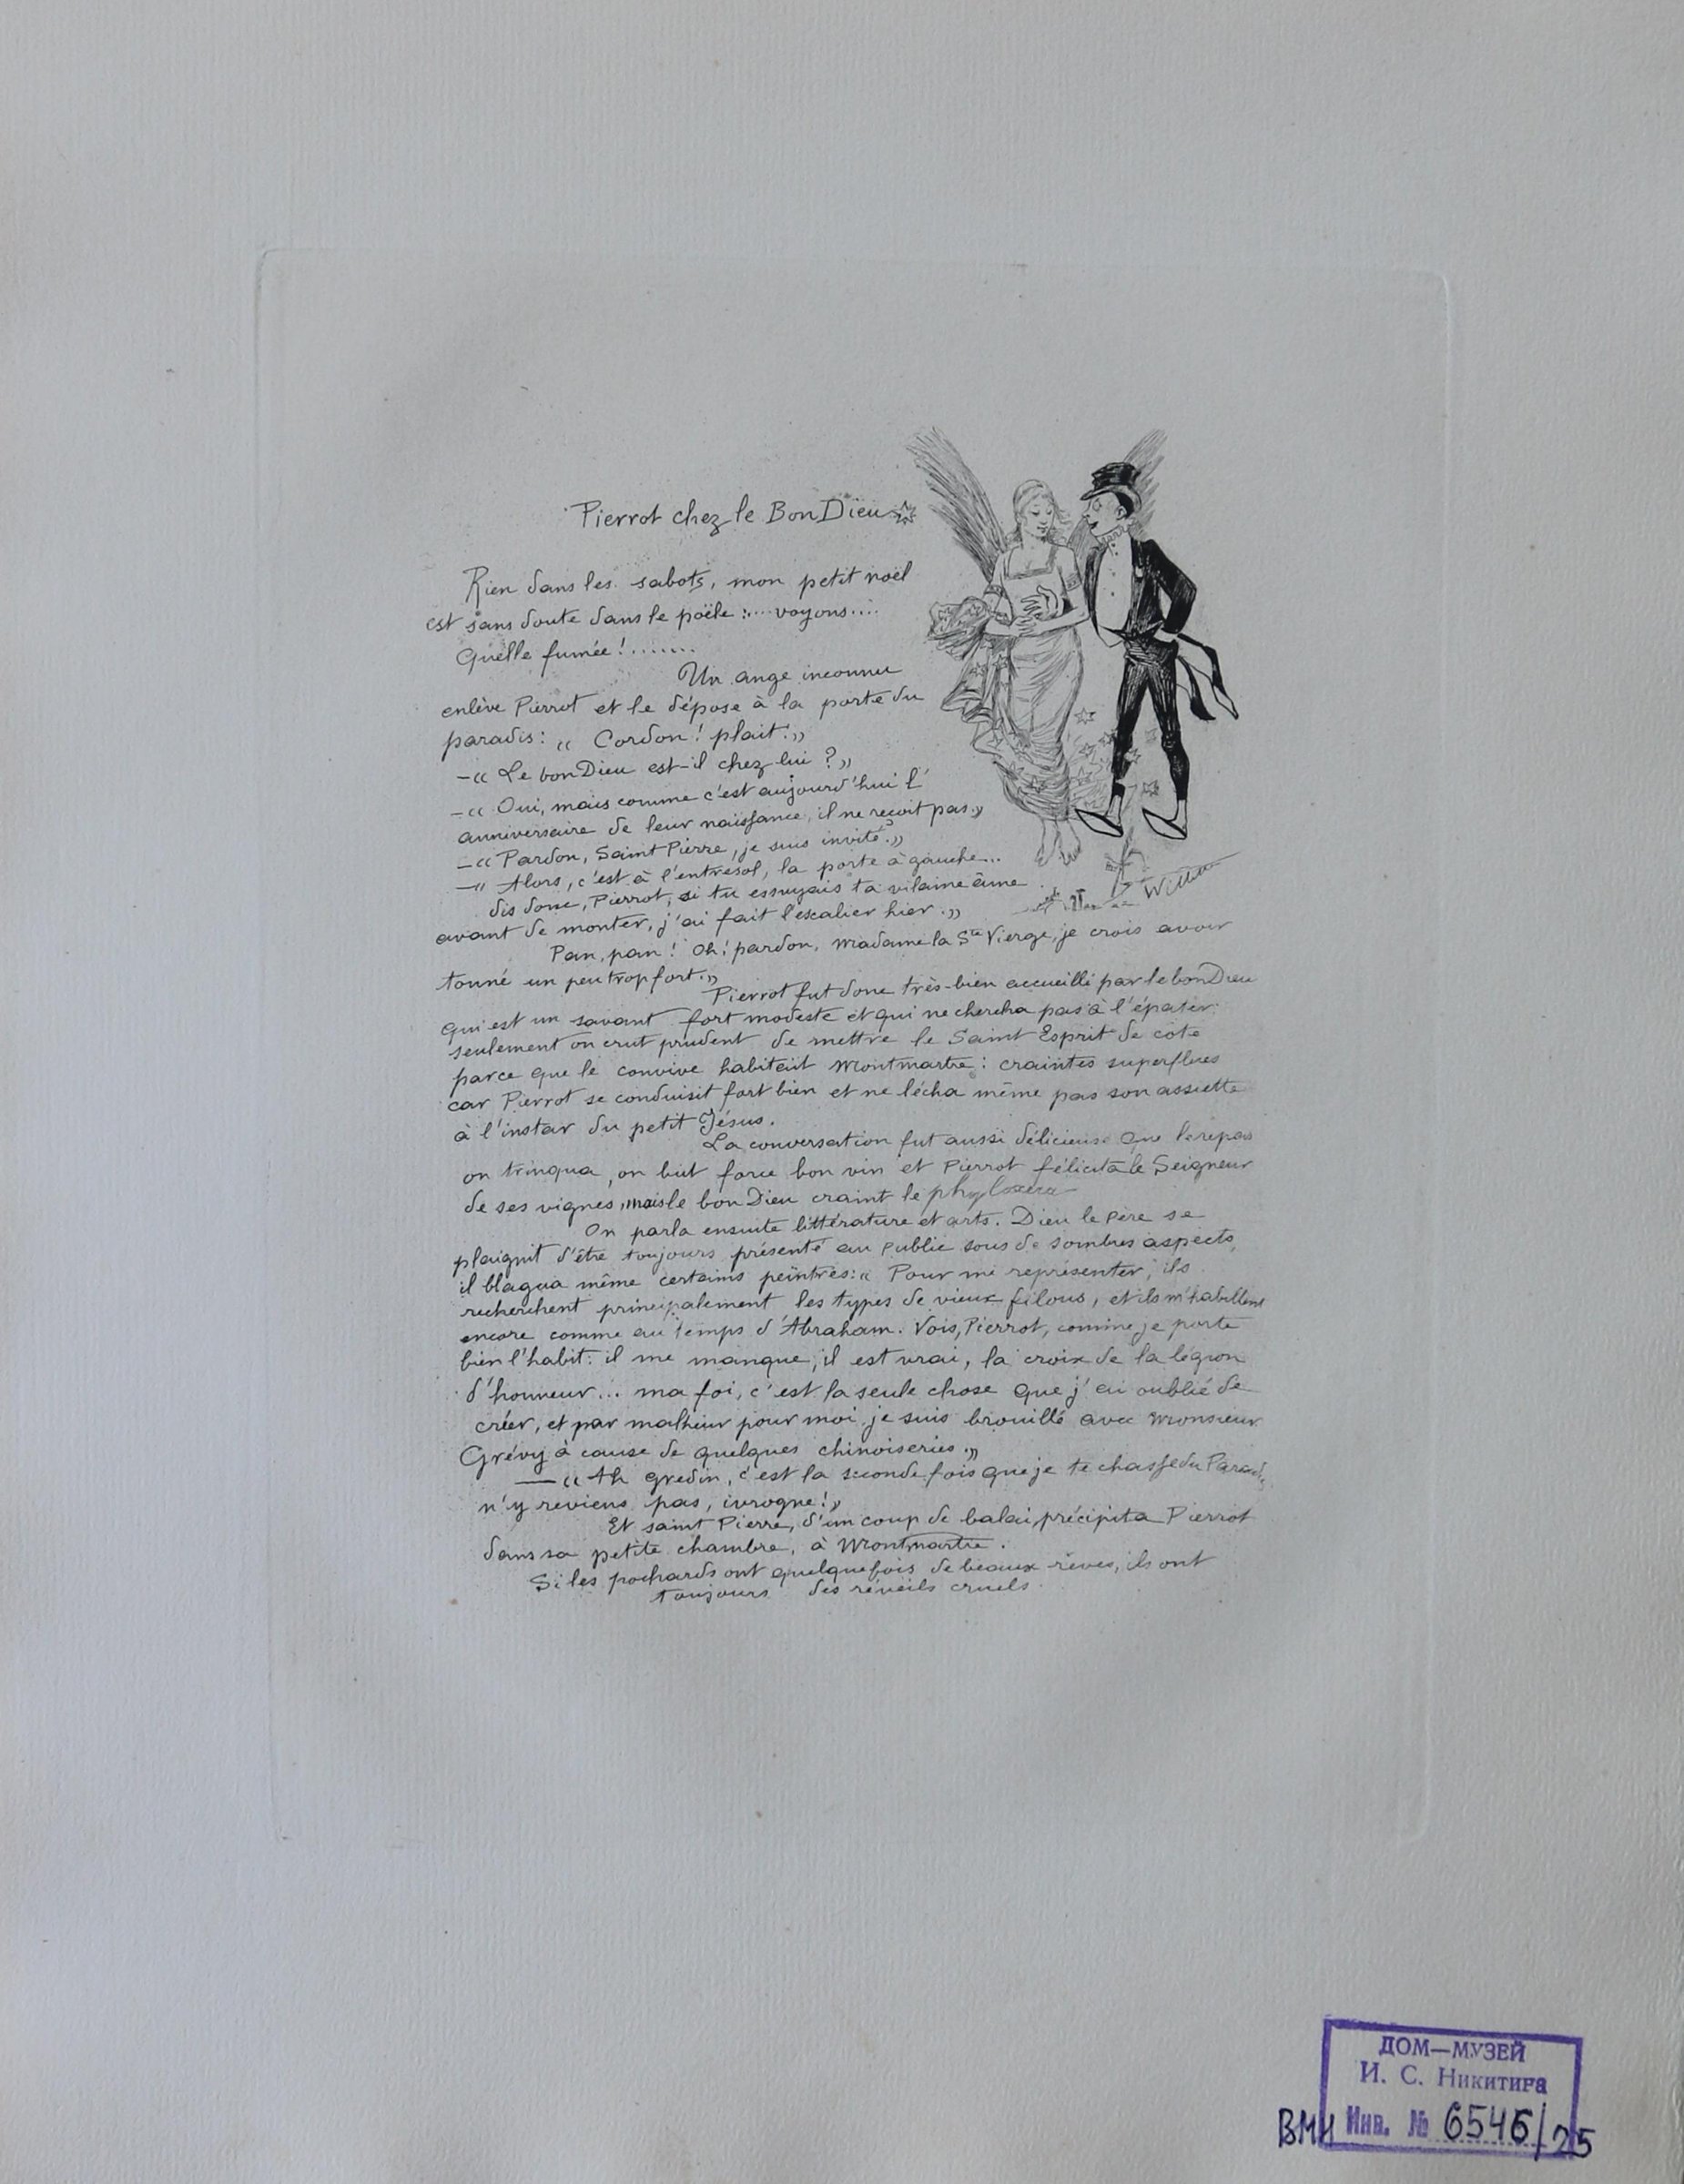 Pierrot chez le Bon Dieu
Rien dans les sabots, mon petit noël
est sans doute dans le poële :.... voyons....
Quelle fumée !.......
Un ange inconnu
enlève Pierrot et le dépose à la porte du
paradis : « Cordon ! plait. »
– « Le bon Dieu est-il chez lui ? »
– « Oui, mais comme c'est aujourd'hui l'
anniversaire de leur naissance, il ne reçoit pas. »
– « Pardon, Saint Pierre, je suis invité. »
– « Alors, c'est à l'entresol, la porte à gauche...
dis donc, Pierrot, si tu essuyais ta vilaine âme
avant de monter, j'ai fait l'escalier hier. »
Pan, pan ! Oh ! pardon, madame la Ste Vierge, je crois avoir
tonné un peu trop fort. »
Pierrot fut donc très-bien accueilli par le bon Dieu
qui est un savant fort modeste et qui ne chercha pas à l'épater.
seulement on crut prudent de mettre le Saint Esprit de côté
parce que le convive habitait Montmartre : craintes superflues
car Pierrot se conduisit fort bien et ne lécha même pas son assiette
à l'instar du petit Jésus.
La conversation fut aussi délicieuse que le repas
on trinqua, on but force bon vin et Pierrot félicita le Seigneur
de ses vignes, mais le bon Dieu craint le phyloxera
On parla ensuite littérature et arts. Dieu le Père se
plaignit d'être toujours présenté au public sous de sombres aspects,
il blagua même certains peintres : « Pour me représenter, ils
recherchent principalement les types de vieux filous, et ils m'habillent
encore comme au temps d'Abraham. Vois, Pierrot, comme je porte
bien l'habit : il me manque, il est vrai, la croix de la légion
d'honneur... ma foi, c'est la seule chose que j'ai oublié de
créer, et par malheur pour moi, je suis brouillé avec Monsieur
Grévy à cause de quelques chinoiseries. »
— « Ah gredin, c'est la seconde fois que je te chasse du Paradis
n'y reviens pas, ivrogne ! »
Et saint Pierre, d'un coup de balai, précipita Pierrot
dans sa petite chambre, à Montmartre.
Si les pochards ont quelquefois de beaux rêves, ils ont
toujours des réveils cruels.
Willette
ДОМ—МУЗЕЙ
И. С. Никитина
ВМН Инв. № 6546/25